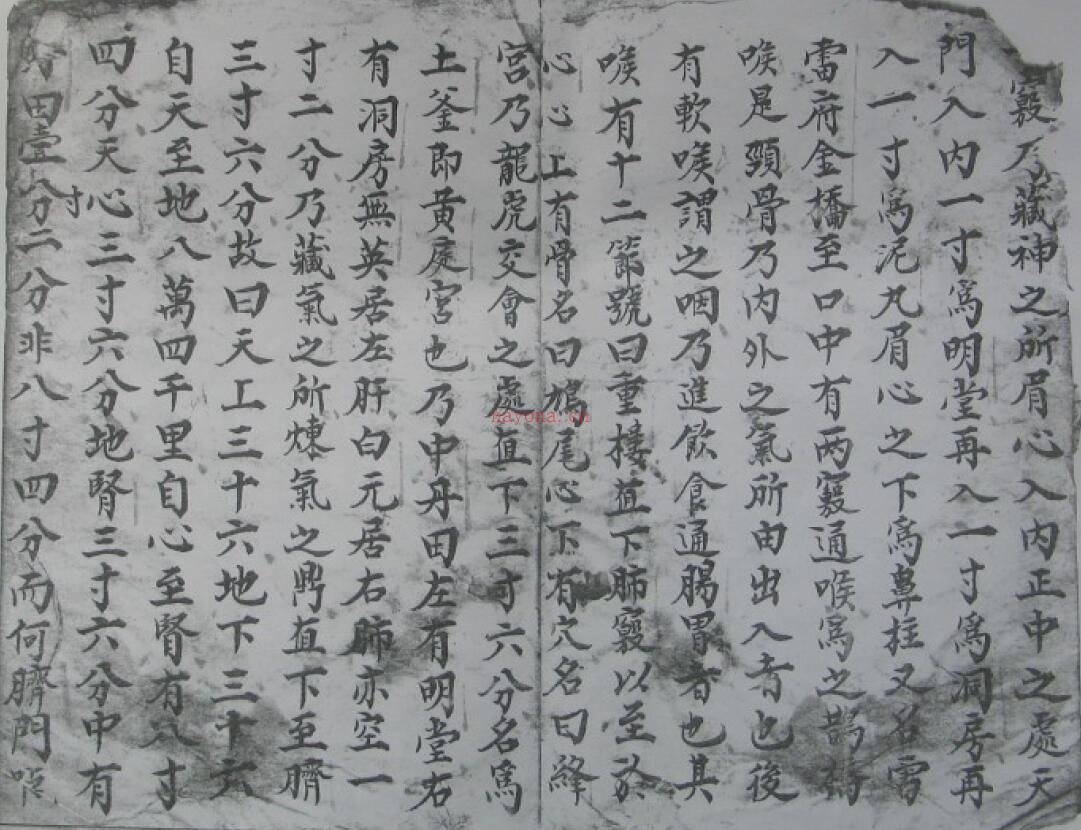 竅乃藏神之所眉心入內正中之處天
門入內一寸為明堂再入一寸為洞房再
入一寸為泥丸眉心之下為鼻柱又名雷
雷府金橋至口中有两竅通喉為之鹊橋
喉是頸骨乃內外之氣所由出入者也後
有軟喉謂之咽乃進飲食通腸胃者也其
喉有十二節號曰重楼直下肺竅以至於
心心上有骨名曰鳩尾心下有穴名曰絳
宮乃龍虎交會之處直下三寸六分名為
土釜即黄庭宮也乃中丹田左有明堂右
有洞房無英居左肝白元居右肺亦空一
寸二分乃藏氣之所煉氣之鼎直下至臍
三寸六分故曰天上三十六地下三十六
自天至地八萬四千里自心至腎有八寸
四分天心三寸六分地腎三寸六分中有
丹田壹寸二分非八寸四分而何臍門
nayona.cn